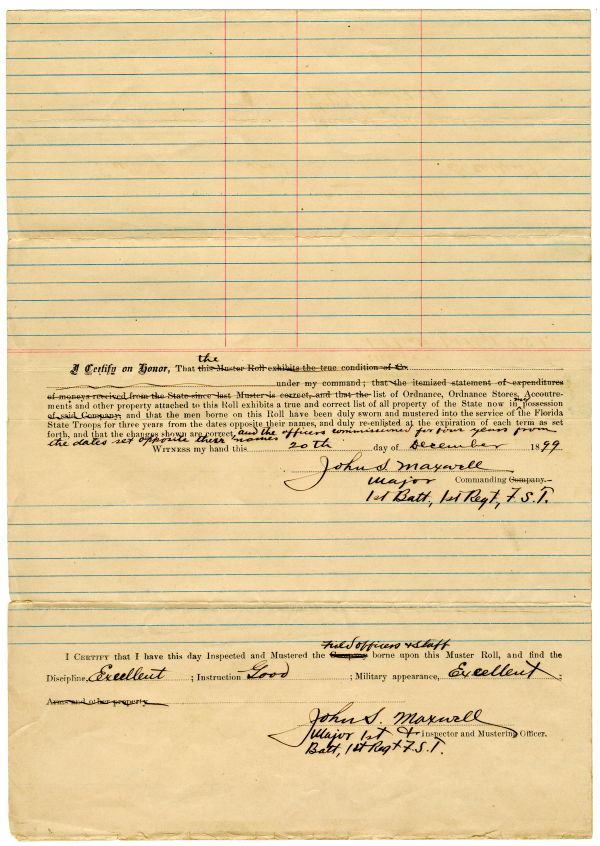 the
I Certify on Honor, That this Muster Roll exhibits the true condition of Co.
under my command; that the itemized statement of expenditures
of moneys received from the State since last Muster is correct, and that the list of Ordnance, Ordnance Stores, Accoutre-
ments and other property attached to this Roll exhibits a true and correct list of all property of the State now in my possession
of said Company; and that the men borne on this Roll have been duly sworn and mustered into the service of the Florida
State Troops for three years from the dates opposite their names, and duly re-enlisted at the expiration of each term as set
forth, and that the changes shown are correct, and the officers commissioned for four years from
the dates set opposite their names
Witness my hand this 20th day of December 1899
John S Maxwell
Major Commanding Company.
1st Batt, 1st Regt, F.S.T.
Field officers & Staff
I Certify that I have this day Inspected and Mustered the Company borne upon this Muster Roll, and find the
Discipline, Excellent ; Instruction Good ; Military appearance, Excellent ;
Arms and other property
John S. Maxwell
Major 1st & Inspector and Mustering Officer.
Batt, 1st Regt F.S.T.